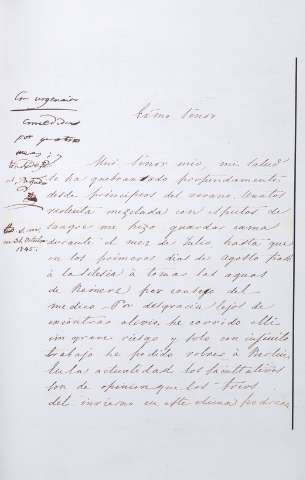 Con urgencia
por quatro
meses
Exmo Señor
Muy Señor mio, mi salud
se ha quebrantado profundamente
desde principios del verano. Una tos
violenta mezclada con esputos de
sangre me hizo guardar cama
durante el mes de Julio hasta que
en los primeros dias de Agosto pasé
à la Silesia à tomar las aguas
de Reinerz por consejo del
medico. Por desgracia lejos de
encontrar alivio, he corrido alli
un grave riesgo y solo con infinito
trabajo he podido volver à Berlin.
En la actualidad los facultativos
son de opinion que los frios
del invierno en este clima podrian
1845.